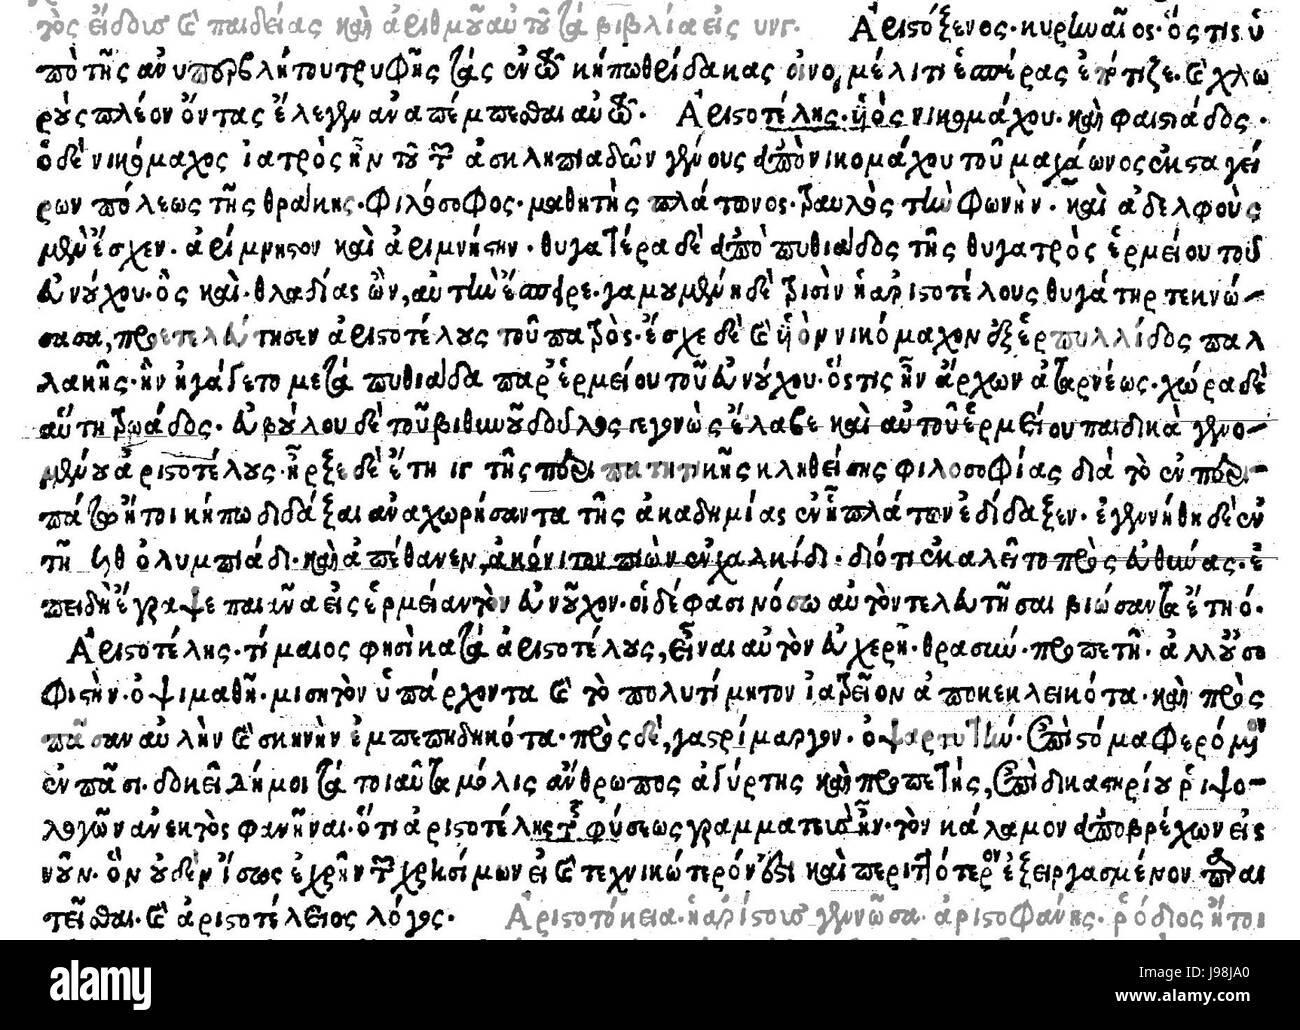 τὸς εἰδόσι καὶ παιδείας καὶ ἀριθμοῦ αὐτοῦ τὰ βιβλία εἰς υνγ. Ἀριστόξενος· κυρηναῖος· ὅστις ὑ
πὸ τῆς ἀνυπερβλήτου τρυφῆς τὰς ἐν τῷ κήπῳ θρίδακας οἰνομέλιτι ἑσπέρας ἐπότιζε· καὶ χλω
ροὺς πλέον ὄντας ἔλεγεν ἀναπέμπεσθαι αὐτῷ. Ἀριστοτέλης· υἱὸς νικομάχου· καὶ φαιστιάδος·
ὁ δὲ νικόμαχος ἰατρὸς ἦν τοῦ τῶν ἀσκληπιαδῶν γένους ἀπὸ νικομάχου τοῦ μαχάωνος ἐκ σταγεί
ρων πόλεως τῆς θράκης· φιλόσοφος· μαθητὴς πλάτωνος· τραυλὸς τὴν φωνήν· καὶ ἀδελφοὺς
μὲν ἔσχεν· ἀρίμνηστον καὶ ἀριμνήστην· θυγατέρα δὲ ἀπὸ πυθιάδος τῆς θυγατρὸς ἑρμείου τοῦ
εὐνούχου· ὃς καὶ θλαδίας ὢν, αὐτὴν ἔσπειρε· γαμουμένη δὲ τρισὶν ἡ ἀριστοτέλους θυγάτηρ τεκνώ-
σασα, προετελεύτησεν ἀριστοτέλους τοῦ πατρός· ἔσχε δὲ καὶ υἱὸν νικόμαχον ἐξ ἑρπυλλίδος παλ
λακῆς· ἣν ἠγάγετο μετὰ πυθιάδα παρ' ἑρμείου τοῦ εὐνούχου· ὅστις ἦν ἄρχων ἀταρνέως· χώρα δὲ
αὕτη τρωάδος· εὐβούλου δὲ τοῦ βιθυνοῦ δοῦλος γεγονὼς ἔλαβε καὶ αὐτοῦ ἑρμείου παιδικὰ γενο-
μένου ἀριστοτέλους· ἦρξε δὲ ἔτη ιγ τῆς περιπατητικῆς κληθείσης φιλοσοφίας διὰ τὸ ἐν περι-
πάτῳ ἤτοι κήπῳ διδάξαι ἀναχωρήσαντα τῆς ἀκαδημίας ἐν ᾗ πλάτων ἐδίδαξεν· ἐγεννήθη δὲ ἐν
τῇ ϟθ ὀλυμπιάδι· καὶ ἀπέθανεν, ἀκόνιτον πιὼν ἐν χαλκίδι· διότι ἐκαλεῖτο πρὸς εὐθύνας· ἐ
πειδὴ ἔγραψε παιᾶνα εἰς ἑρμείαν τὸν εὐνοῦχον· οἱ δέ φασι νόσῳ αὐτὸν τελευτῆσαι βιώσαντα ἔτη ό·
Ἀριστοτέλης· τίμαιος φησὶ κατὰ ἀριστοτέλους, εἶναι αὐτὸν εὐχερῆ· θρασὺν· προπετῆ· ἀλλ' οὐ σο
φιστὴν· ὀψιμαθῆ· μισητὸν ὑπάρχοντα καὶ τὸ πολυτίμητον ἰατρεῖον ἀποκεκλεικότα· καὶ πρὸς
πᾶσαν αὐλὴν καὶ σκηνὴν ἐμπεπηδηκότα· πρὸς δὲ, γαστρίμαργον· ὀψαρτυτὴν· ἐπὶ στόμα φερόμενον
ἐν πᾶσι· δοκεῖ δή μοι τὰ τοιαῦτα μόλις ἄνθρωπος ἀγύρτης καὶ προπετὴς, ἐπὶ δικαστηρίου ῥιψο-
λογῶν ἀνεκτὸς φανῆναι· ὅτι ἀριστοτέλης τῆς φύσεως γραμματεὺς ἦν· τὸν κάλαμον ἀποβρέχων εἰς
νοῦν· ὃν οὐδὲν ἴσως ἐχρῆν τῶν χρησίμων εἰ καὶ τεχνικώτερόν ἐστι καὶ περιττότερον ἐξειργασμένον
τεῖσθαι· καὶ ἀριστοτέλειος λόγος. Ἀριστοτόκεια· ἡ ἀρίστους γεννῶσα· ἀριστοφάνης· ῥόδιος ἤτοι
alamy
Image ID: J98JA0
www.alamy.com